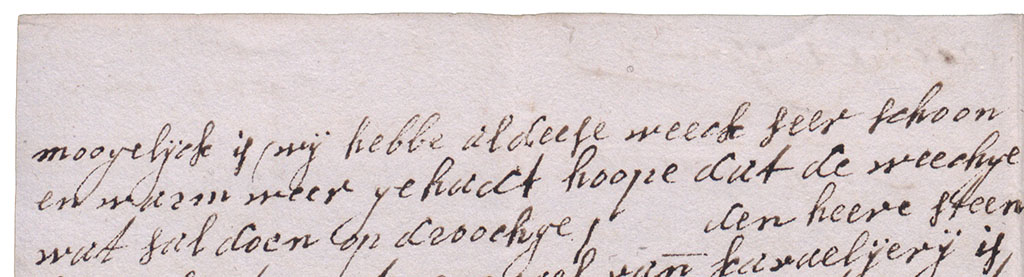 moogelijck is / wij hebbe al deese weeck seer schoon
en warm weer gehadt hoope dat de weechge
wat sal doen op droochge / den heere steen
van kavaelijerij is